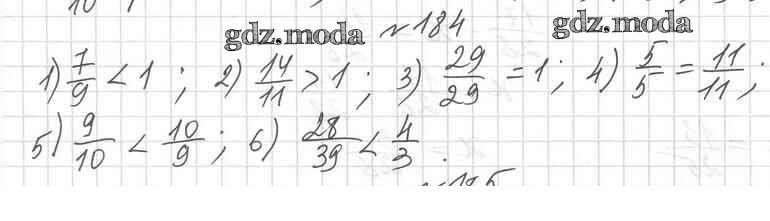 gdz.moda №184 gdz.moda
1) 7/9 < 1 ; 2) 14/11 > 1 ; 3) 29/29 = 1 ; 4) 5/5 = 11/11 ;
5) 9/10 < 10/9 ; 6) 28/39 < 4/3 .